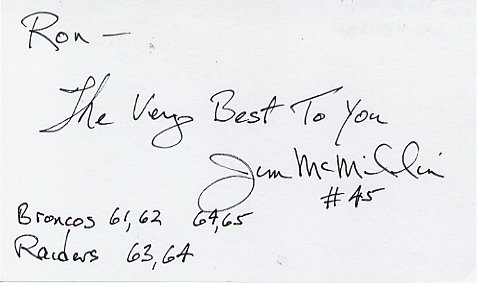 Ron —
The Very Best To You
Jim McMillin
#45
Broncos 61,62 64,65
Raiders 63,64